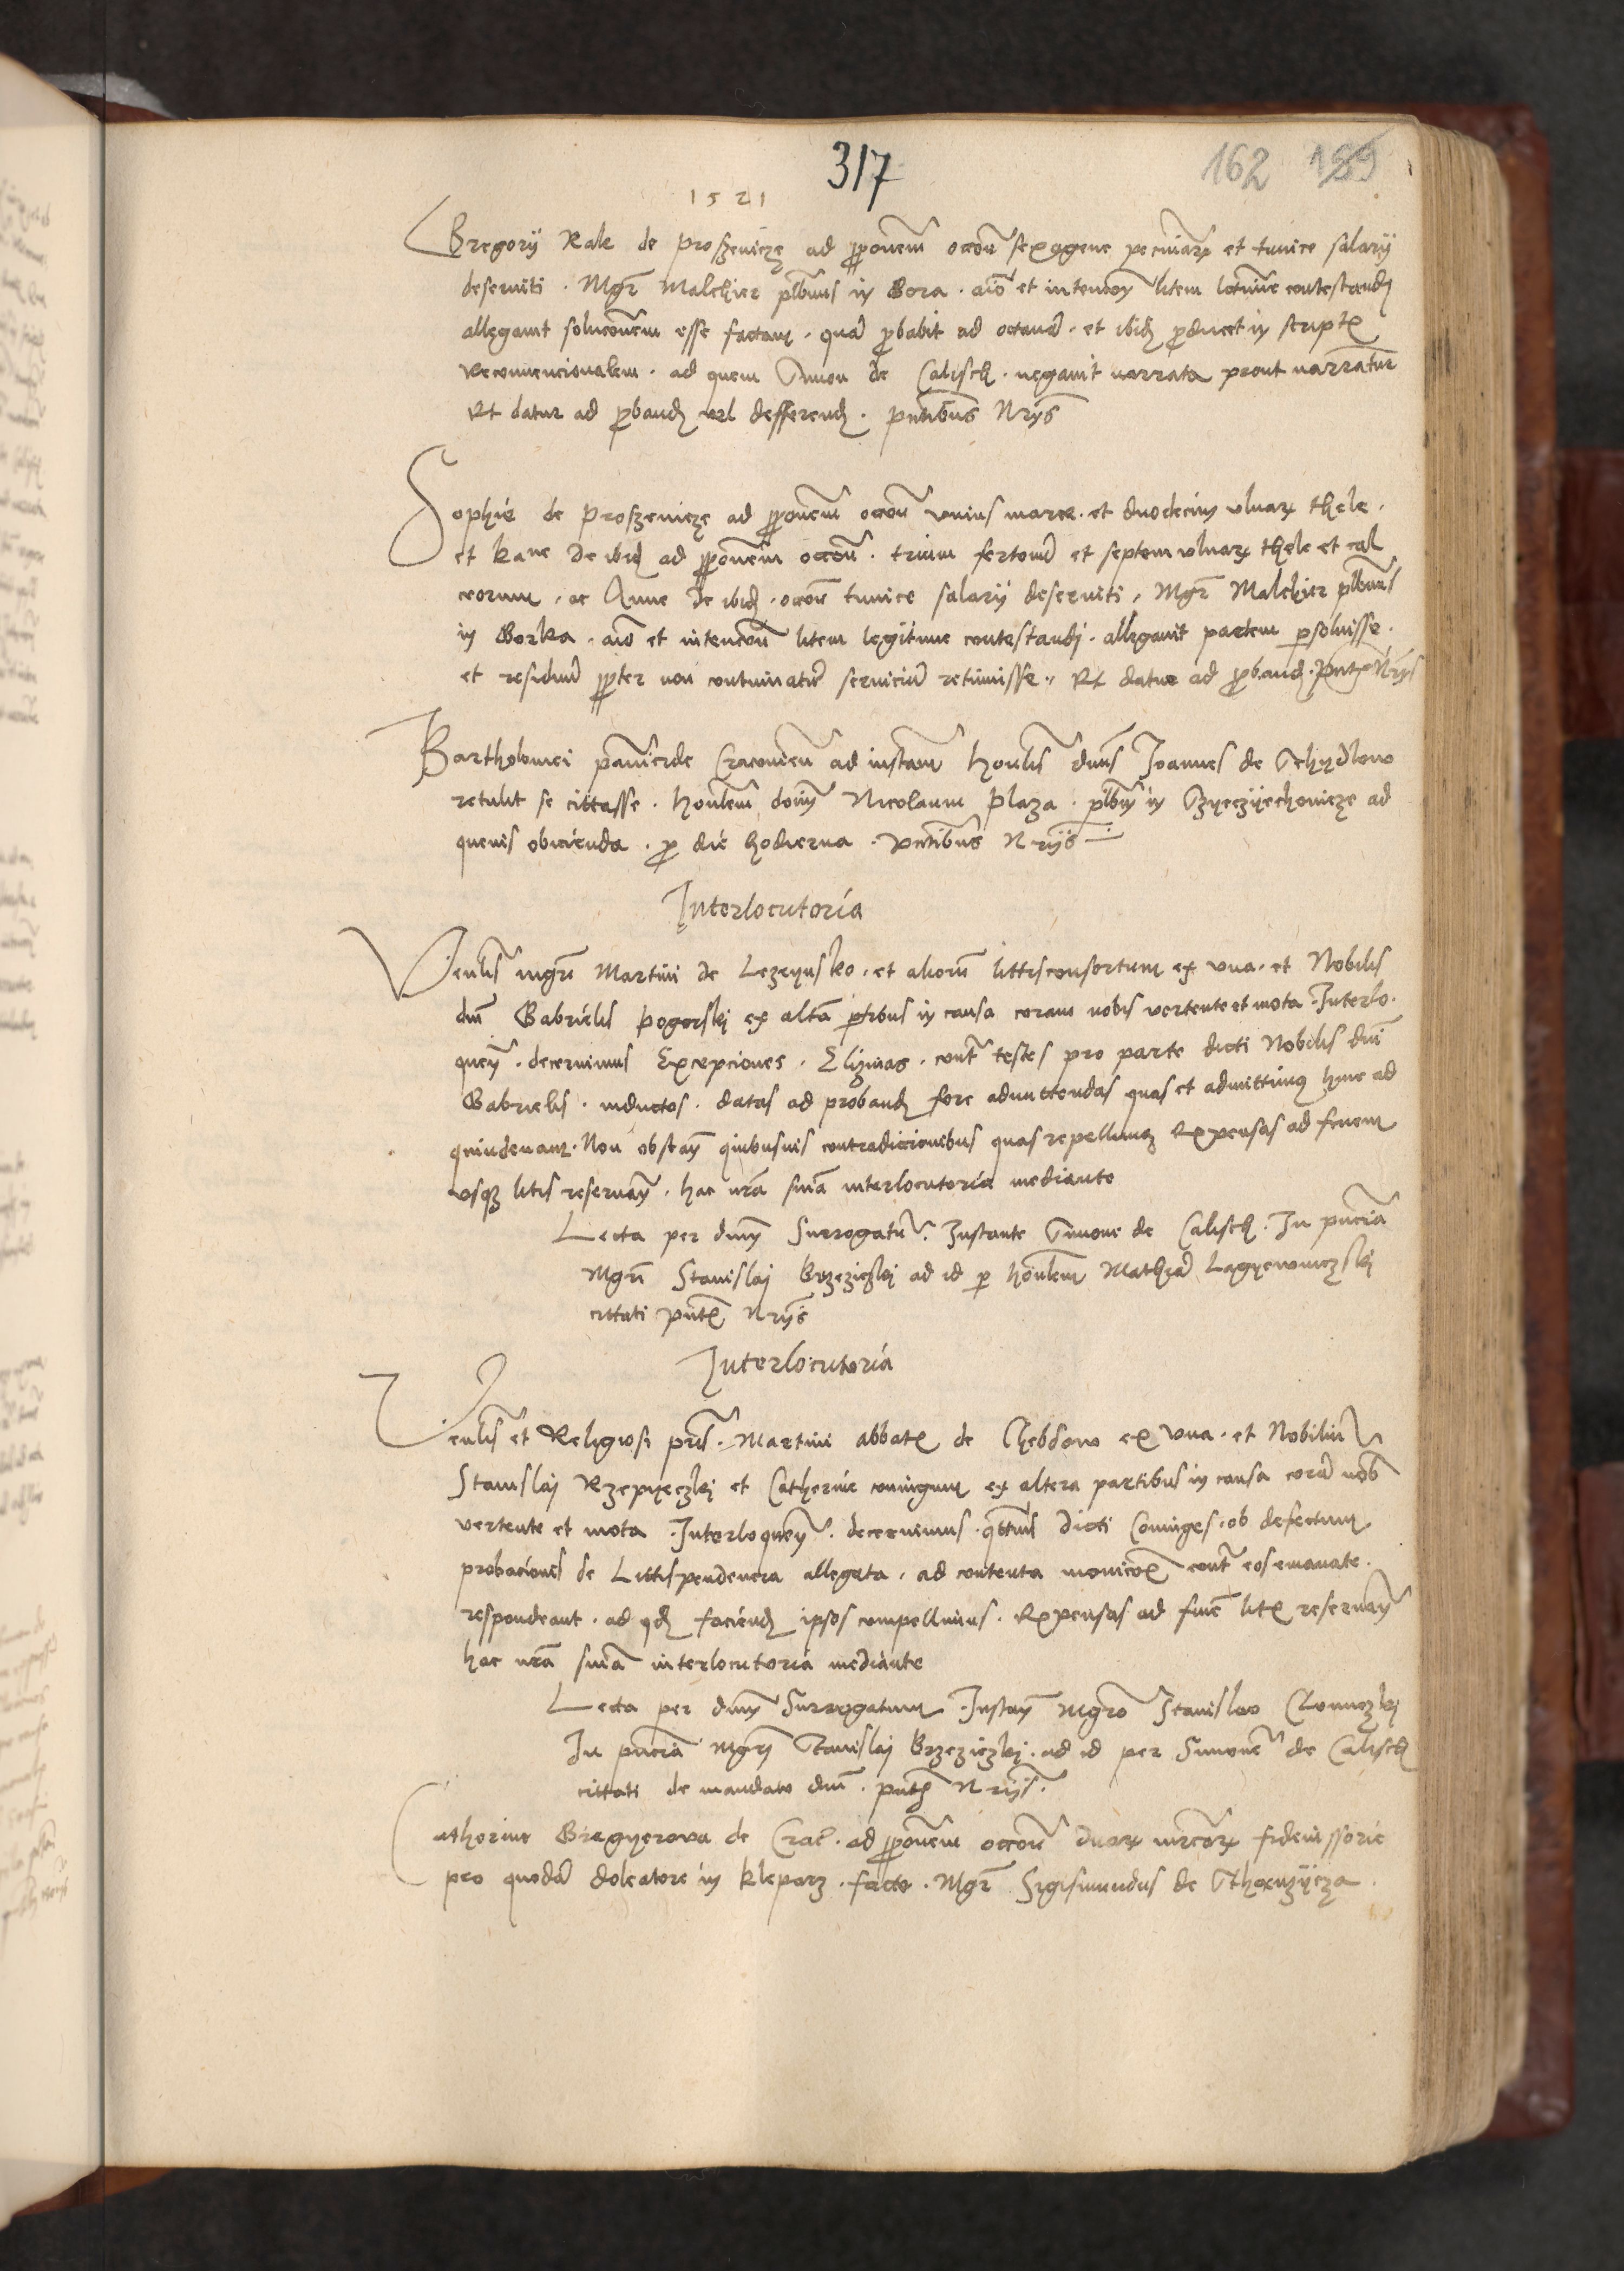 317
162 159
1521
Gregorÿ Kale de Proszevicze ad ꝓponem̅ occo̅n̅ sexagene pecuniarꝝ et tunice salarÿ
deserviti . Mgr̅ Malchier plb̅nus in Gora . aio̅ et intencion̅ litem contestandi
allegavit soluc̅onem esse factam . quā ꝓbabit ad octavā . et ibid̅ ꝓducet in scriptꝭ
Reconvencionalem . ad quem Simon de Calisch . negavit narrata prout narrantur̅
Et datur ad ꝓband̅ vel defferend̅ . pn̅tibus Nr̅ÿs
Sophie de Proszevicze ad ꝓponem̅ occo̅n̅ unius marce . et duodecim ulnarꝝ thele .
et Kane de ibid̅ ad ꝓponem̅ occo̅n̅ . trium fertonū et septem ulnarꝝ thele et cal
ceorum . ac Anne de ibid̅ . occo̅n̅ tunice salarÿ deserviti . Mgr̅ Malchier plb̅nus
in Gorka . aio̅ et intenco̅n̅ litem legitime contestandi . allegavit partem ꝑsolvisse .
et residuū ꝓpter non continuatū serviciū retinuisse . Et datur ad ꝓband̅ . pn̅tꝭ Nr̅ÿs
Bartholomei Cracovien̅ ad instan̅ honlis̅ dn̅s Joannes de Schÿdlovo
retulit se cittasse . honlem̅ dom̅ Nicolaum Plaza . plb̅m in ad
quevis obicienda . ꝓ die hodierna . pn̅tibus Nr̅ÿs
Interlocutoria
Venlis̅ mgri̅ Martini de Lezeynsko . et aliorum̅ littisconsortum ex una . et Nobilis
dni̅ Gabrielis Pogorski ex alt̅a ꝑtibus in causa coram nobis vertente et mota . Interlo .
quen̅ . decernimus Excepciones . Elizivas . cont̅ testes pro parte dicti Nobilis dni̅
Gabrielis . inductos . datas ad proband̅ fore admittendas quas et admittimꝰ hinc ad
quindenam . Non obstan̅ quibusvis contradiccionibus quas repellimꝰ Expensas ad finem
usqꝫ litis reservan̅ . hac nr̅a sn̅ia interlocutoria mediante
Lecta per dnm̅ Surrogatū . Instante Simone de Calisch . In pn̅cia
Mgri̅ Stanislai Brzeziczki ad id ꝑ honlem̅ Mathiā Lagyewniczski
cittati pn̅tꝭ Nr̅ÿs
Interlocutoria
Venlis̅ et Religiosi pris̅ . Martini abbatꝭ de Chebdow ex una . et Nobiliū
Stanislai Rzepyeczki et Catherine coniugum ex altera partibus in causa corā nob̅
vertente et mota . Interloquen̅ . decernimus . dicti Coniuges . ob defectum
probacionis de Littispendencia allegata . ad contenta monico̅ꝭ cont̅ eos emanate .
respondeant . ad qd̅ faciend̅ ipsos compellimus . Expensas ad fine̅ litꝭ reservan̅
hac nr̅a sn̅ia interlocutoria mediante
Lecta per dnm̅ Surrogatum . Instan̅ Mgro̅ Stanislao
In pn̅cia Mgri̅ Stanislai Brzeziczki . ad id per Simone̅ de Calisch
cittati de mandato dni̅ . pn̅tꝭ Nr̅ÿs .
Catherine Gregyerova de Crac̅ . ad ꝓponem̅ occo̅n̅ duarꝝ mrcarꝝ fideiussorie
pro quodā doleatore in Kleparz . facte . Mgr̅ Sigismundus de